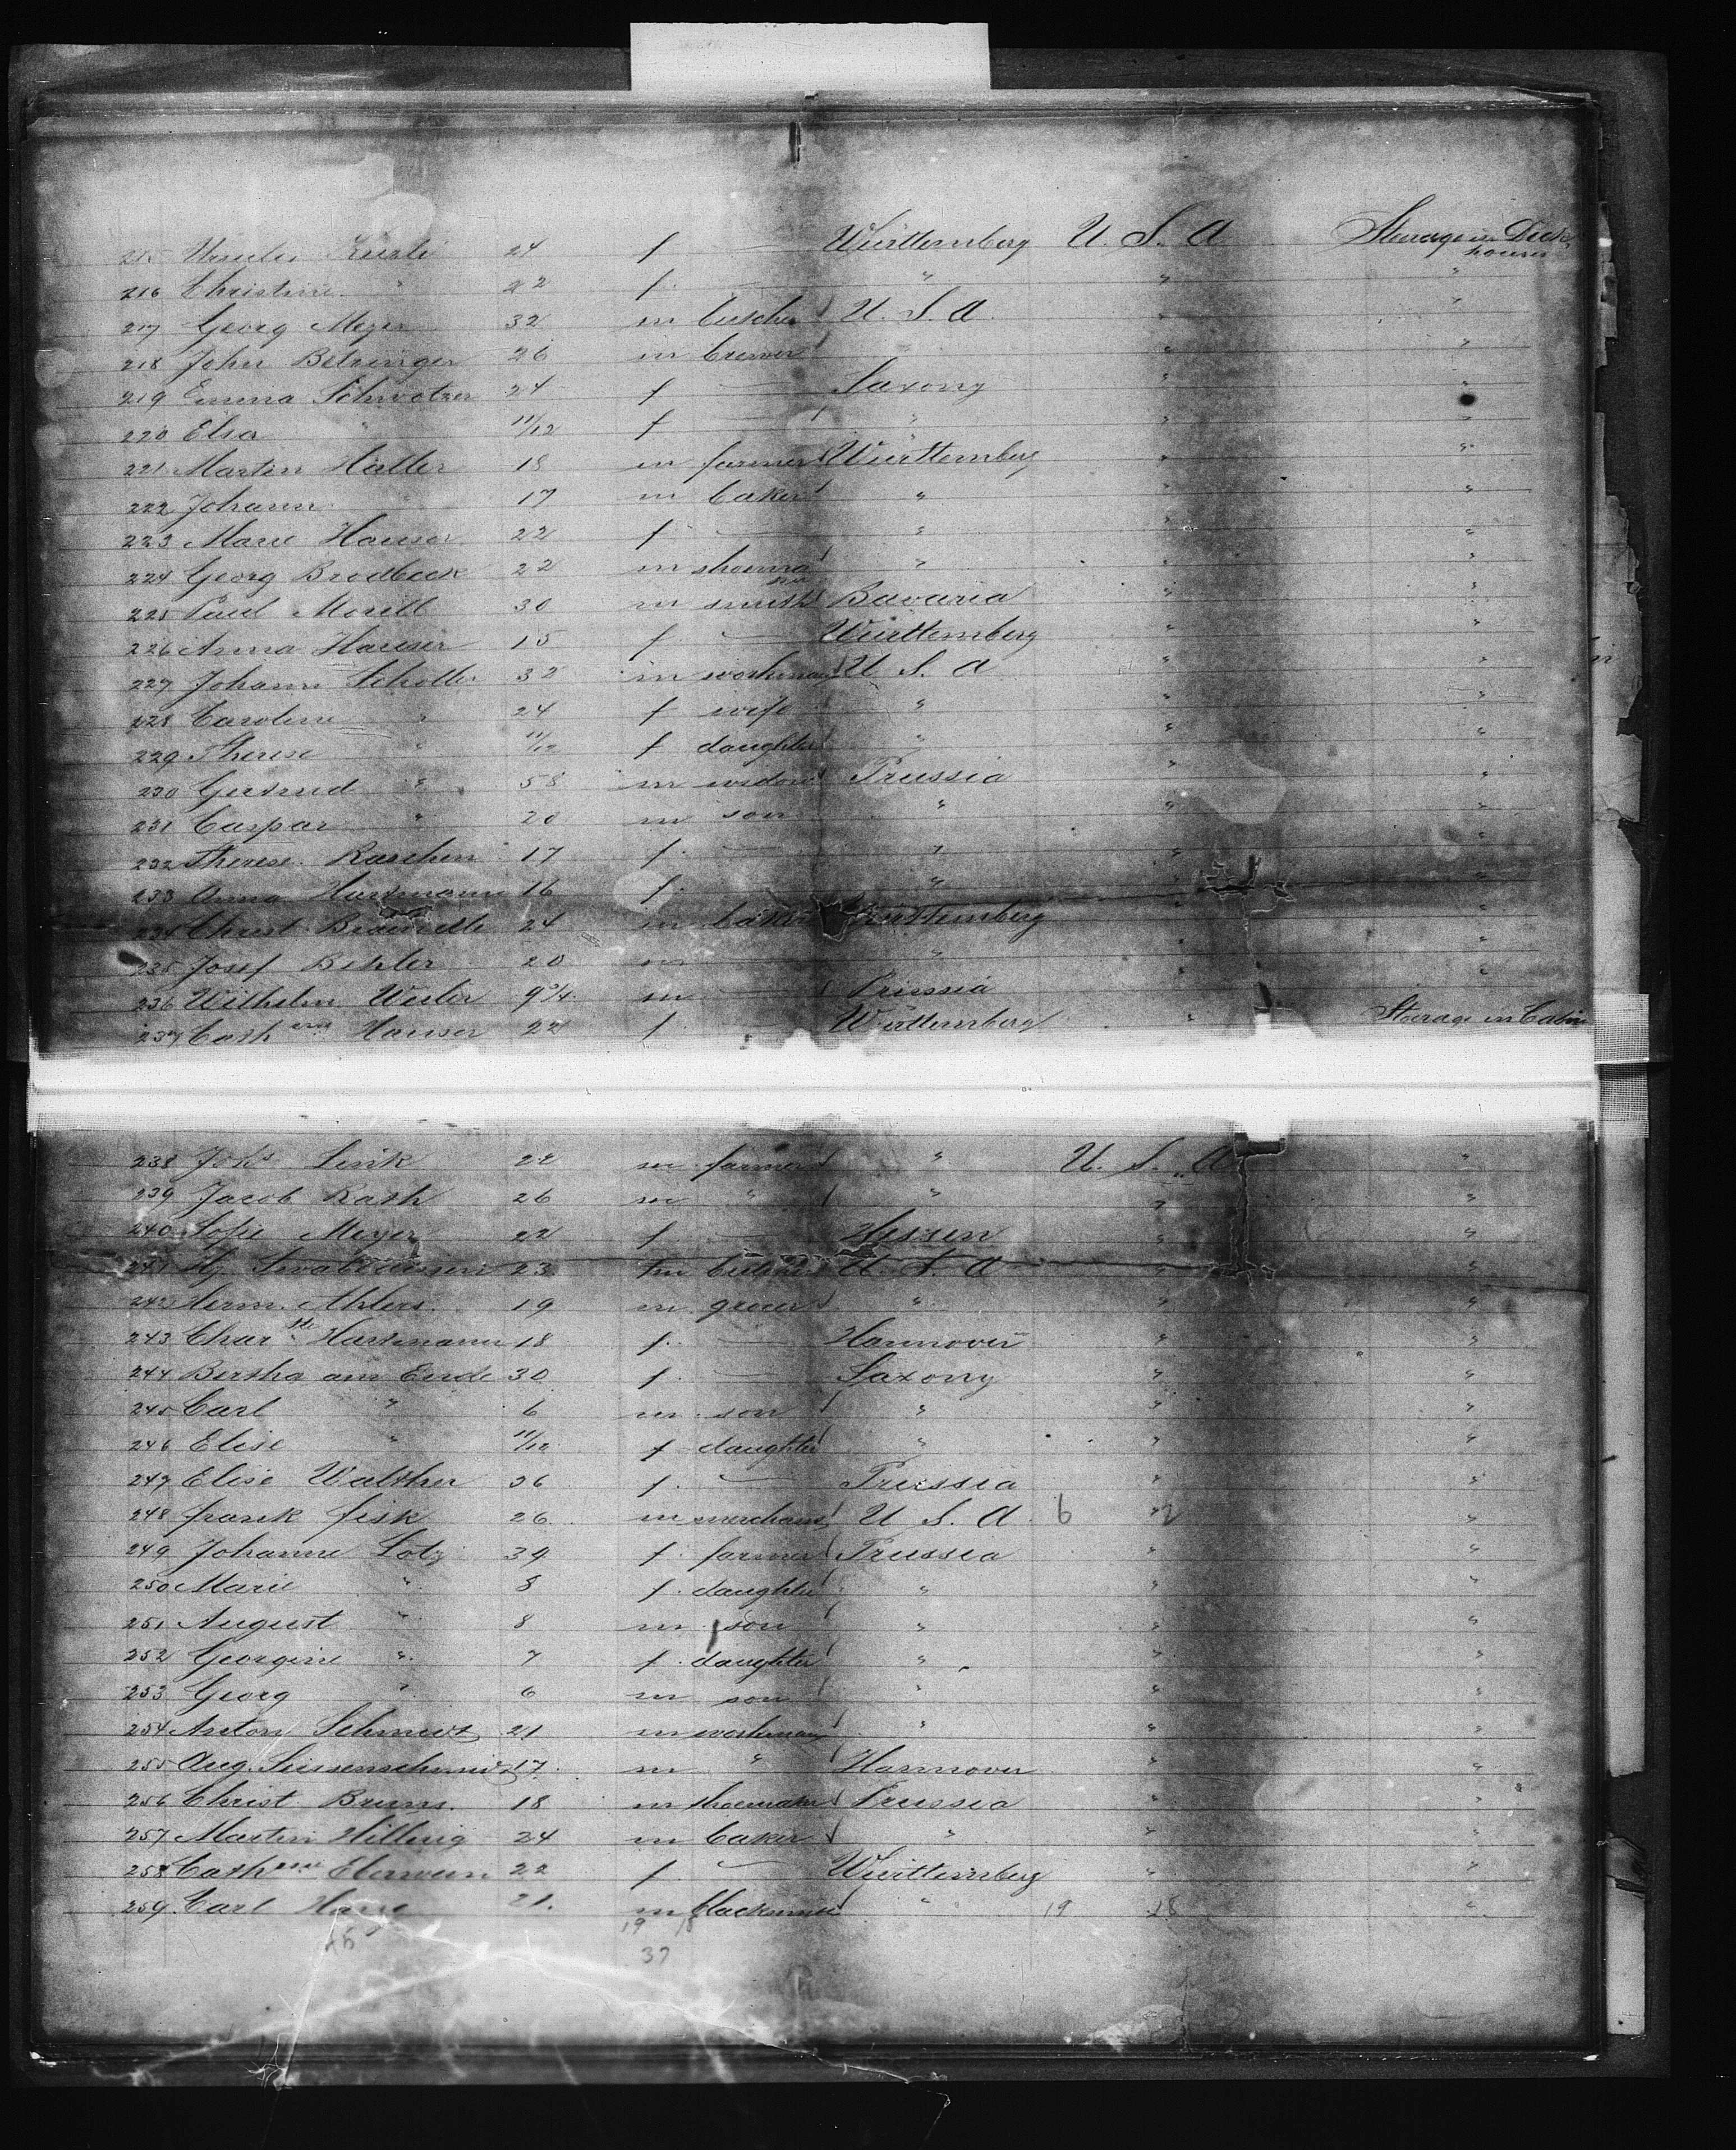 215 Kuerli 24 f — Württemberg U. S. A Steerage in Deck
houses
216 Christine " 22 f. — " " "
217 Georg Meyer 32 m butcher U. S. A. " "
218 John Betzinger 26 m brewer " "
219 Emma Schwotzer 24 f — Saxony " "
220 Elsa " 11/12 f — " " "
221 Martin Haller 18 m farmer Württemberg " "
222 Johann " 17 m baker " " "
223 Marie Hauser 22 f — " " "
224 Georg Brodbeck 22 m shoema " " "
ker
225 Paul Morell 30 m smith Bavaria " "
226 Anna Hauser 15 f. — Württemberg " "
227 Johann Scholler 32 m workman U. S. A " "
228 Caroline " 24 f wife " " "
229 Therese " 11/12 f daughter " " "
230 Gertrud " 58 m widow Prussia " "
231 Caspar " 20 m son " " "
232 Therese Raschen 17 f. — " " "
233 Anna Hartmann 16 f. — " " "
234 Christ. 24 m baker Württemberg " "
235 Josef Bihler 20 m — " " "
236 Wilhelm Weiler 9 3/4 m — Prussia " "
237 Cathena Hauser 22 f — Württemberg " Steerage in Cabin
238 Johs Link 22 m farmer " U. S. A "
239 Jacob Rath 26 m " " " "
240 Sofie Meyer 22 f — Hessen " "
241 Hy. 23 m U. S. A " "
242 Herm. Ahlers. 19 m grocer " " "
243 Charlte Hartmann 18 f. — Hannover " "
244 Bertha am Ende 30 f. — Saxony " "
245 Carl " 6 m son " " "
246 Elise " 11/12 f daughter " " "
247 Elise Walther 36 f. — Prussia " "
248 Frank Fisk 26 m merchant U. S. A. 6 " "
249 Johanne Lotz 39 f. farmer Prussia " "
250 Marie " 8 f. daughter " " "
251 August " 8 m son " " "
252 Georgine " 7 f. daughter " " "
253 Georg " 6 m son " " "
254 Anton Schmidt 21 m workman " " "
255 Aug. 17. m " Hannover " "
256 Christ. Bruns. 18 m shoemaker Prussia " "
257 Martin Hillerig 24 m baker " " "
258 Cathena Eberwein 22 f — Württemberg " "
259. Carl 21. m blacksmith " 19 18 "
19 18
45 37